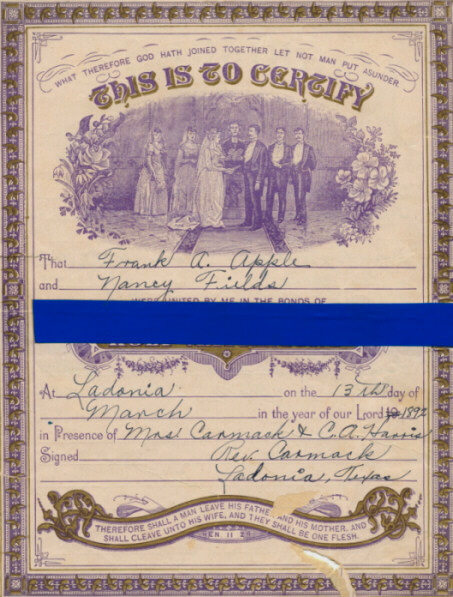 WHAT THEREFORE GOD HATH JOINED TOGETHER LET NOT MAN PUT ASUNDER
THIS IS TO CERTIFY
That Frank A. Apple
and Nancy Fields
WERE UNITED BY ME IN THE BONDS OF
At Ladonia on the 13th day of
March in the year of our Lord 1892
in Presence of Mrs Carmack & C.A. Harris
Signed Rev. Carmack
Ladonia, Texas
THEREFORE SHALL A MAN LEAVE HIS FATHE AND HIS MOTHER, AND
SHALL CLEAVE UNTO HIS WIFE, AND THEY SHALL BE ONE FLESH.
GEN II 24